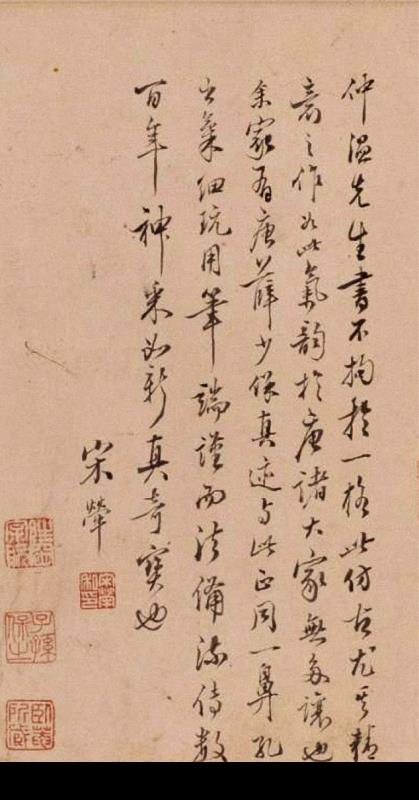 仲温先生書不拘於一格此仿古尤其精
意之作如此氣韻於唐諸大家無多讓也
余家有唐薛少保真迹与此正同一鼻孔
出氣細玩用筆端謹而法備流傳數
百年神采如新真奇寶也
宋犖
子孫保之